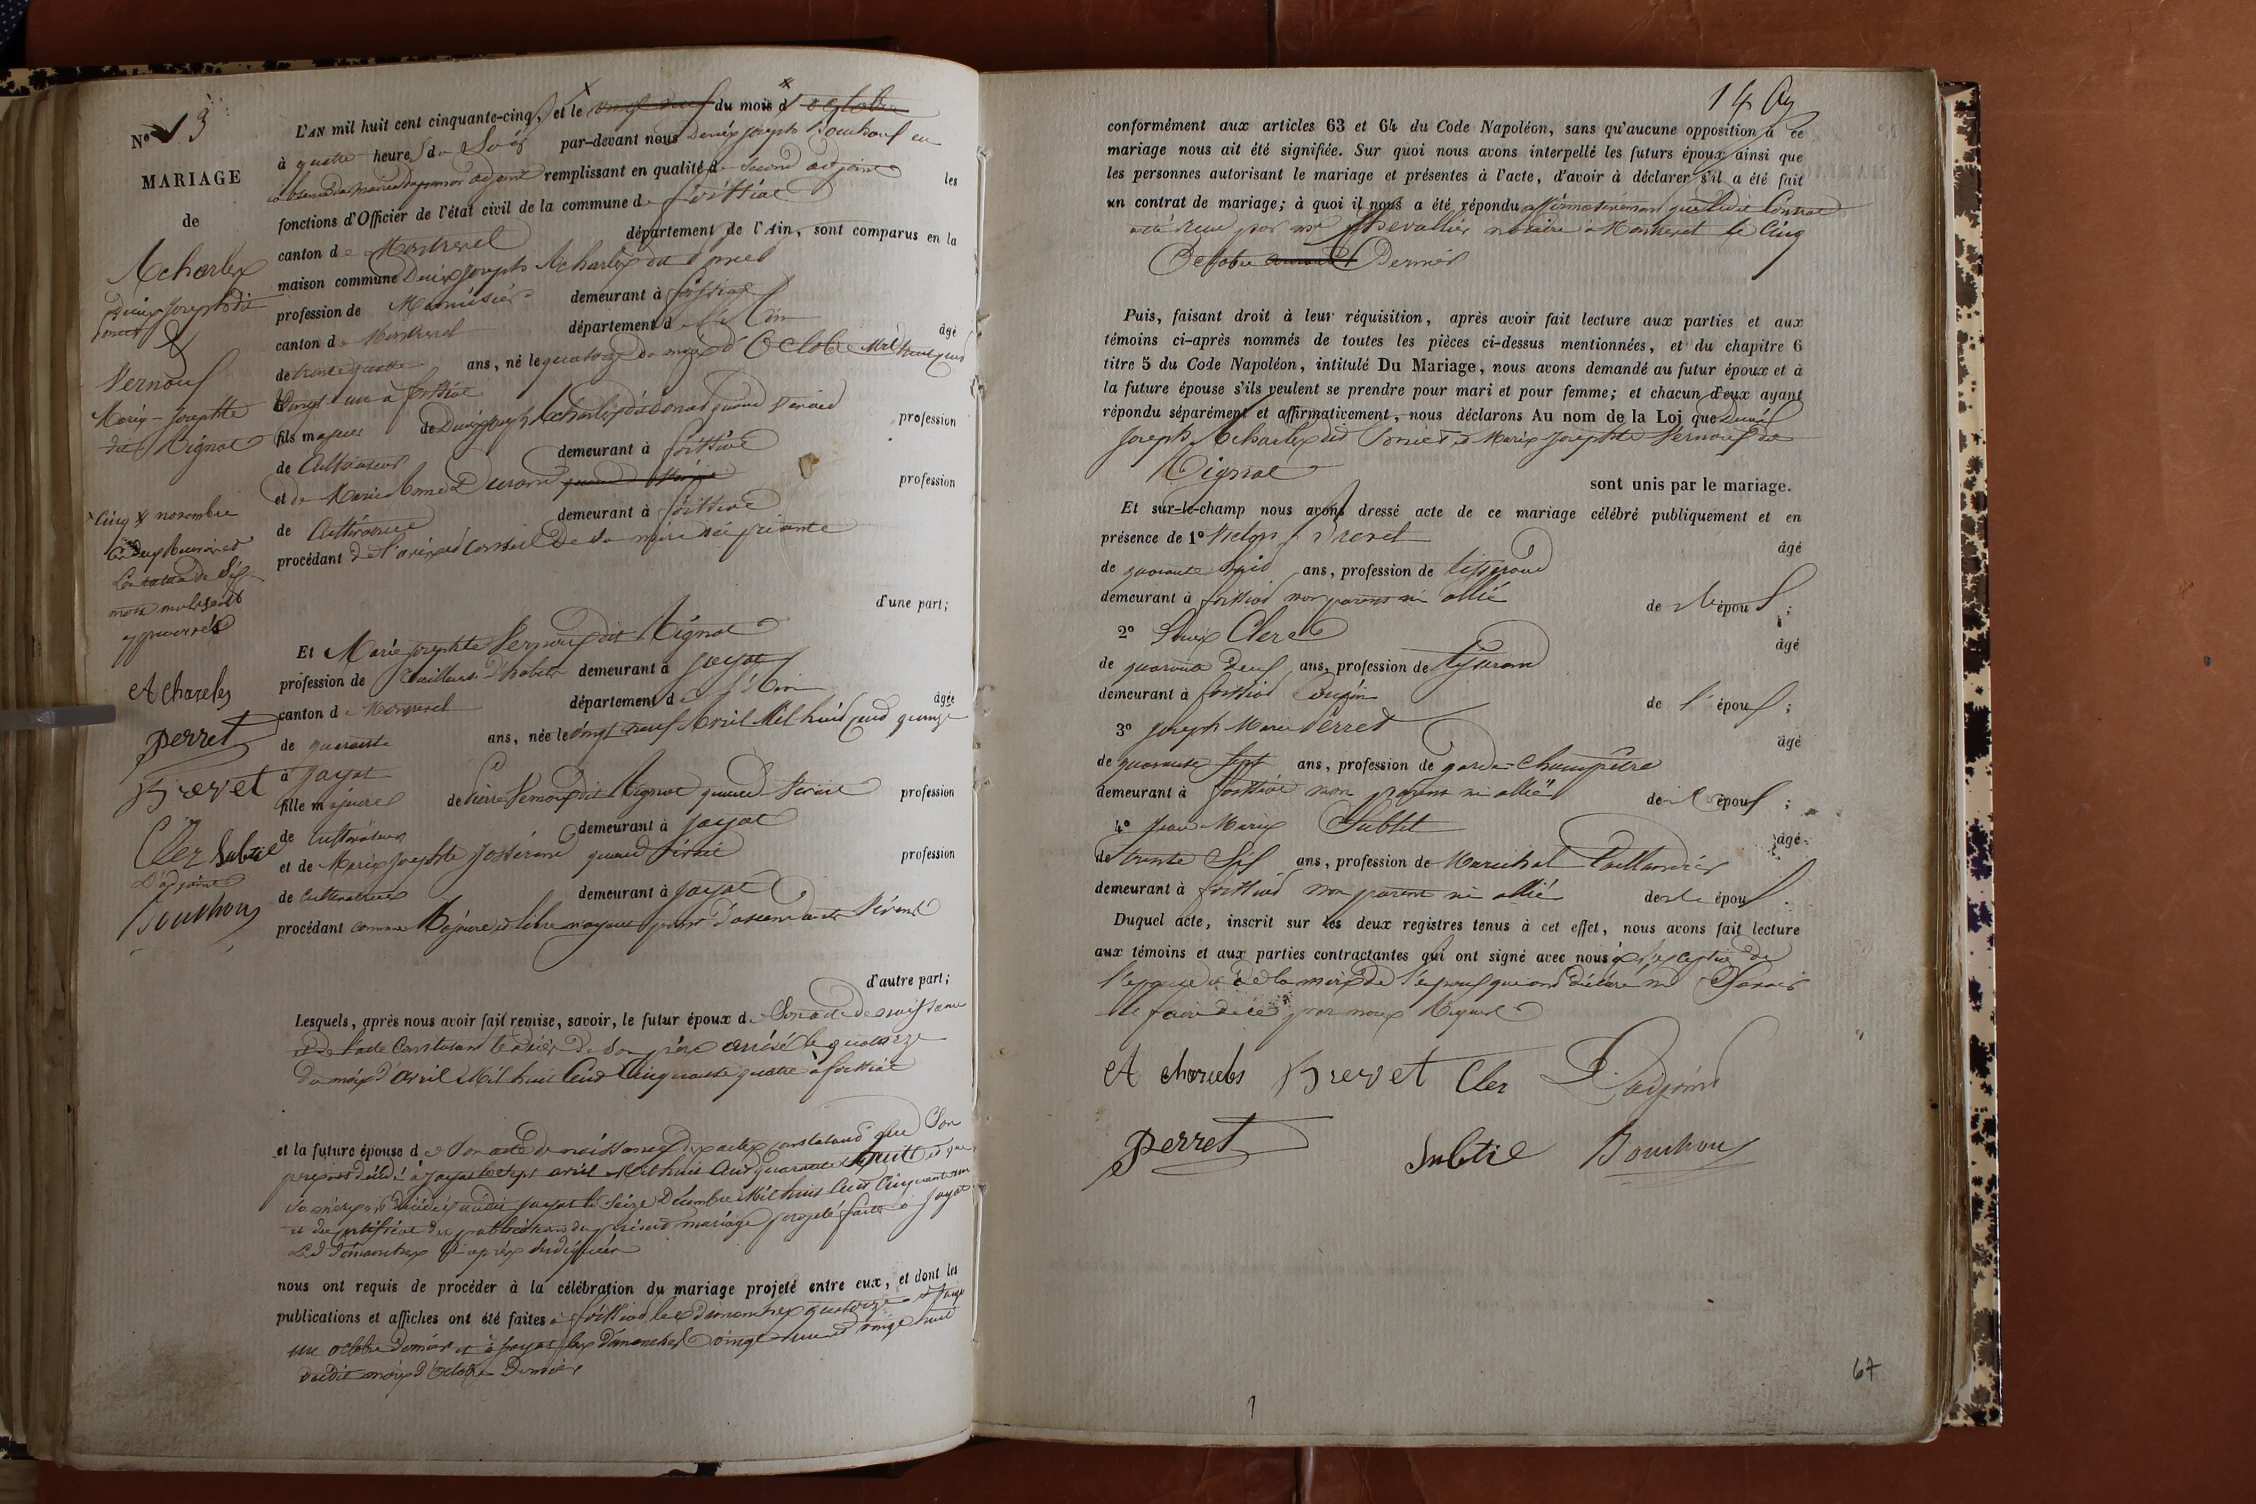 No 13
MARIAGE
de
Acharlex
Denix Joseph dit
&
Vernouf
Marix-Josephte
dit Rignat
L'AN mil huit cent cinquante-cinq, et le vingt neuf du mois d'octobre
à quatre heures du Soir par-devant nous Denix Joseph Bouchouf en
absence du maire du premier adjoint remplissant en qualité de Second adjoint les
fonctions d'Officier de l'état civil de la commune de foissiat
canton de Montrevel département de l'Ain, sont comparus en la
maison commune Denix Joseph Acharlex dit
profession de Menuisier demeurant à foissiat
canton de Montrevel département de l'Ain âgé
de trente quatre ans, né le quatorze du mois d'Octobre Mil huit cent
Vingt-un à foissiat
fils majeur de Denix Joseph Acharlex dit quand Vivait profession
de Cultivateur demeurant à foissiat
et de Marie Durand quand Vivait profession
de Cultivatrice demeurant à foissiat
procédant de l'avis et Conseil De Sa mère ici présente
d'une part;
x cinq x novembre
approuvés
Acharles
perret
Brevet
Cler Subtil
D'adjoint
Bouchouf
Et Marie Josephte Vernouf dit Rignat
profession de Tailleuse d'habits demeurant à Jayat
canton de Montrevel département de l'Ain âgée
de quarante ans, née le Vingt neuf Avril Mil huit Cent quinze
à Jayat
fille majeure de Pierre Vernouf dit Rignat quand Vivait profession
de Cultivateur demeurant à Jayat
et de Marix Josephte Josserand quand Vivait profession
de Cultivatrice demeurant à Jayat
procédant comme Majeure et libre n'ayant point d'ascendants Vivants
d'autre part;
Lesquels, après nous avoir fait remise, savoir, le futur époux de Son acte de naissance
et de l'acte Constatant le décès de Son père arrivé le quatorze
du mois d'Avril Mil huit Cent Cinquante quatre à foissiat
et la future épouse de Son acte de naissance des actes constatant que Son
père est décédé à Jayat le sept avril Mil huit Cent quarante huit et que
sa mère est décédée audit Jayat le Seize Décembre Mil huit Cent Cinquante un
et du Certificat des publications du présent mariage projeté faites à Jayat
Les dimanches ci après indiqués
nous ont requis de procéder à la célébration du mariage projeté entre eux, et dont les
publications et affiches ont été faites à foissiat les dimanches quatorze et vingt
un octobre dernier et à Jayat les dimanches vingt un et vingt huit
dudit mois d'Octobre Dernier
14
conformément aux articles 63 et 64 du Code Napoléon, sans qu'aucune opposition à ce
mariage nous ait été signifiée. Sur quoi nous avons interpellé les futurs époux ainsi que
les personnes autorisant le mariage et présentes à l'acte, d'avoir à déclarer s'il a été fait
un contrat de mariage; à quoi il nous a été répondu affirmativement que ledit Contrat
a été reçu par me Chevallier notaire à Montrevel le Cinq
Octobre courant Dernier
Puis, faisant droit à leur réquisition, après avoir fait lecture aux parties et aux
témoins ci-après nommés de toutes les pièces ci-dessus mentionnées, et du chapitre 6
titre 5 du Code Napoléon, intitulé Du Mariage, nous avons demandé au futur époux et à
la future épouse s'ils veulent se prendre pour mari et pour femme; et chacun d'eux ayant
répondu séparément et affirmativement, nous déclarons Au nom de la Loi que Denix
Joseph Acharlex dit et Marix Josephte Vernouf dit
Rignat
sont unis par le mariage.
Et sur-le-champ nous avons dressé acte de ce mariage célébré publiquement et en
présence de 1° Brevet âgé
de quarante huit ans, profession de tisserand
demeurant à foissiat non parent ni allié de l'époux;
2° Clerc âgé
de quarante deux ans, profession de tisserand
demeurant à foissiat Cousin de l'époux;
3° Joseph Marie Perret âgé
de quarante sept ans, profession de garde-Champêtre
demeurant à foissiat non parent ni allié de l'époux;
4° Jean-Marix Subtil âgé
de trente Six ans, profession de Maréchal Taillandier
demeurant à foissiat non parent ni allié de l'époux.
Duquel acte, inscrit sur les deux registres tenus à cet effet, nous avons fait lecture
aux témoins et aux parties contractantes qui ont signé avec nous à l'exception de
l'épouse et de la mère de l'époux qui ont déclaré ne Savoir
le faire de ce par nous Requis
Acharles Brevet Cler L'adjoint
perret Subtil Bouchouf
67